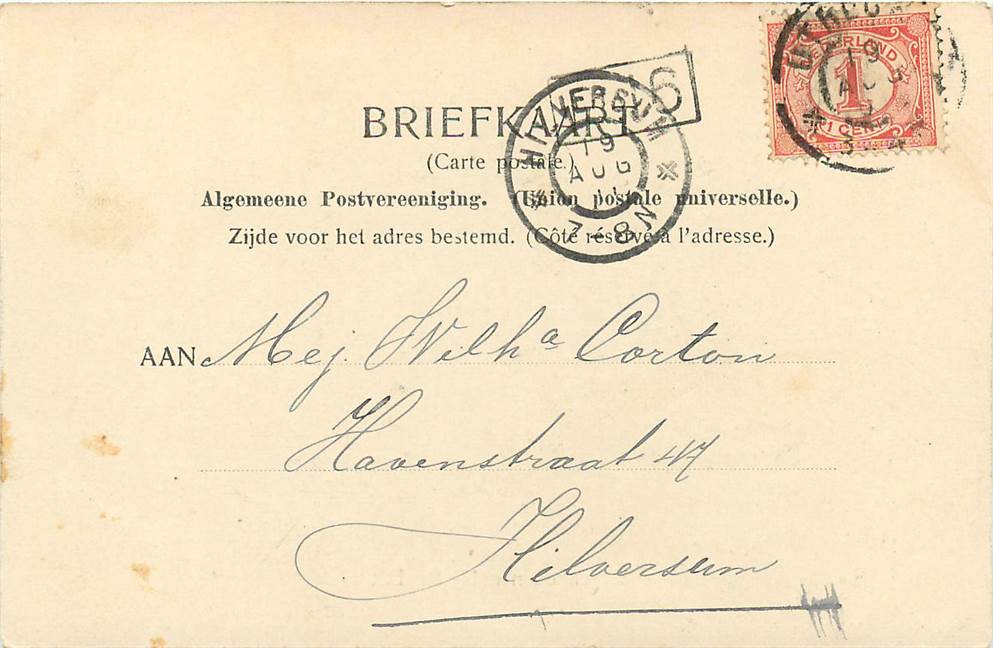 BRIEFKAART
(Carte postale.)
Algemeene Postvereeniging. (Union postale universelle.)
Zijde voor het adres bestemd. (Côté réservé à l'adresse.)
AAN Mej. Wilhª Corton
Havenstraat 47
Hilversum
HILVERSUM
19
AUG
11
7-8N
6
UTRECH
19
AUG
NEDERLAND
1
1 CENT